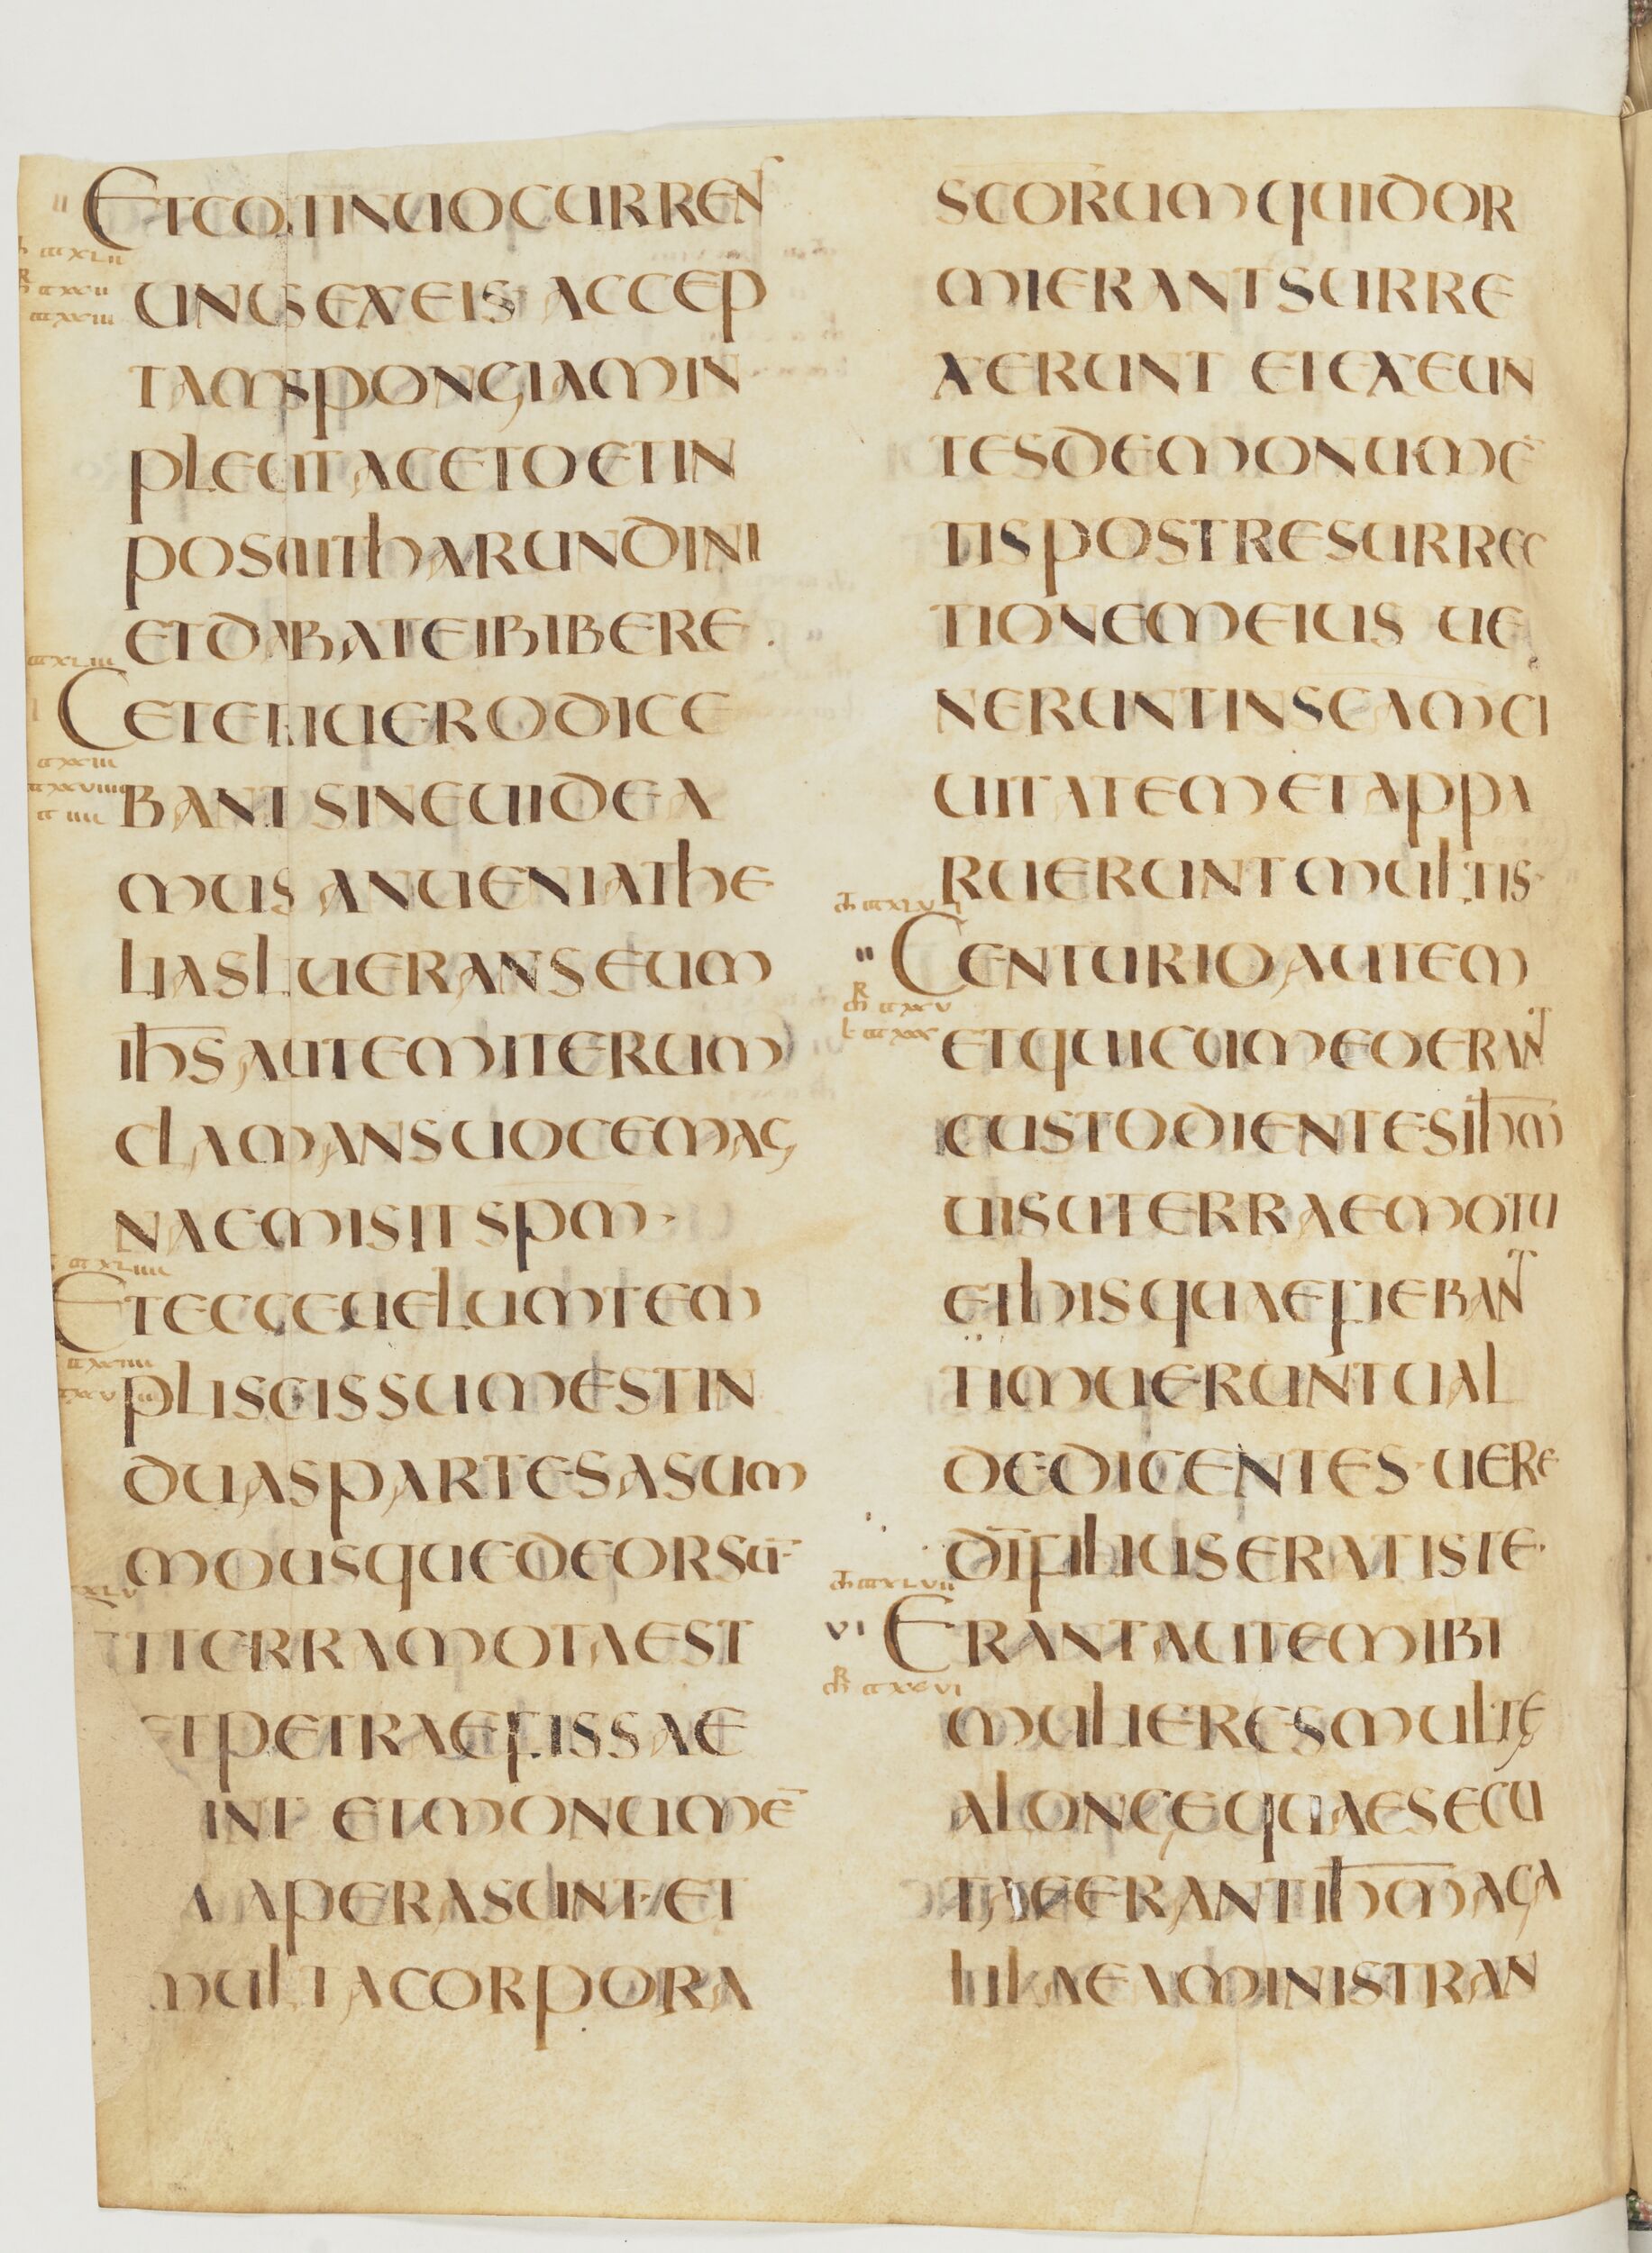 ETCOTINUOCURRENS
UNUSEXEIS ACCEP
TAMSPONGIAMIN
PLEUITACETOETIN
POSUITHARUNDINI
ETDABATEIBIBERE.
CETERIUERODICE
BANT SINEUIDEA
MUS ANUENIATHE
LIASLIUERANSEUM
IHS̅AUTEMITERUM
CLAMANSUOCEMAG
NAEMISITSPM̅·
ETECCEUELUMTEM
PLISCISSUMESTIN
DUASPARTESASUM
MOUSQUEDEORSŪ
ETTERRAMOTAEST
ETPETRAEFISSAE
SUNT ETMONUMĒ
TA APERASUNT/ET
MULTACORPORA
SCORUMQUIDOR
MIERANTSURRE
XERUNT ETEXEUN
TESDEMONUMĒ
TISPOSTRESURREC
TIONEMEIUS UE
NERUNTINSCAMCI
UITATEMETAPPA
RUERUNTMULTIS·
CENTURIOAUTEM
ETQUICUMEOERANT
CUSTODIENTESIHM̅
UISUTERRAEMOTU
ETHISQUAEFIEBANT
TIMUERUNTUAL
DEDICENTES·UERE
DĪFILIUSERATISTE·
ERANTAUTEMIBI
MULIERESMULTE
ALONGEQUAESECU
TAEERANTIHM̅AGA
LILAEAMINISTRAN